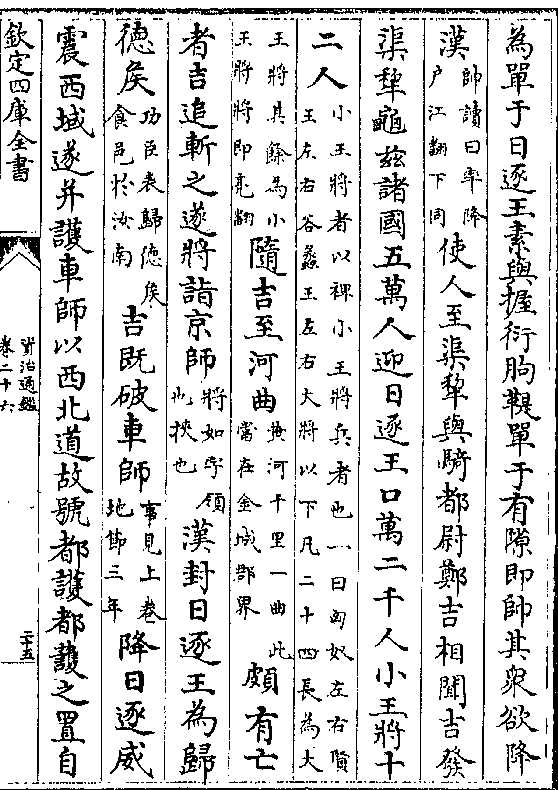 為單于日逐王素與握衍朐鞮單于有隙即帥其衆欲降
漢帥讀曰率降户江翻下同使人至渠犂與騎都尉鄭吉相聞吉發
渠犂龜兹諸國五萬人迎日逐王口萬二千人小王將十
二人小王將者以裨小王將兵者也一曰匈奴左右賢王左右谷蠡王左右大將以下凡二十四長為大
王將其餘為小王將將即亮翻隨吉至河曲黄河千里一曲此當在金城郡界頗有亡
者吉追斬之遂將詣京師將如字領也挾也漢封日逐王為歸
德侯功臣表歸德侯食邑於汝南吉既破車師事見上卷地節三年降日逐威
震西域遂并護車師以西北道故號都護都護之置自
欽定四庫全書
資治通鑑
卷二十六
二十五